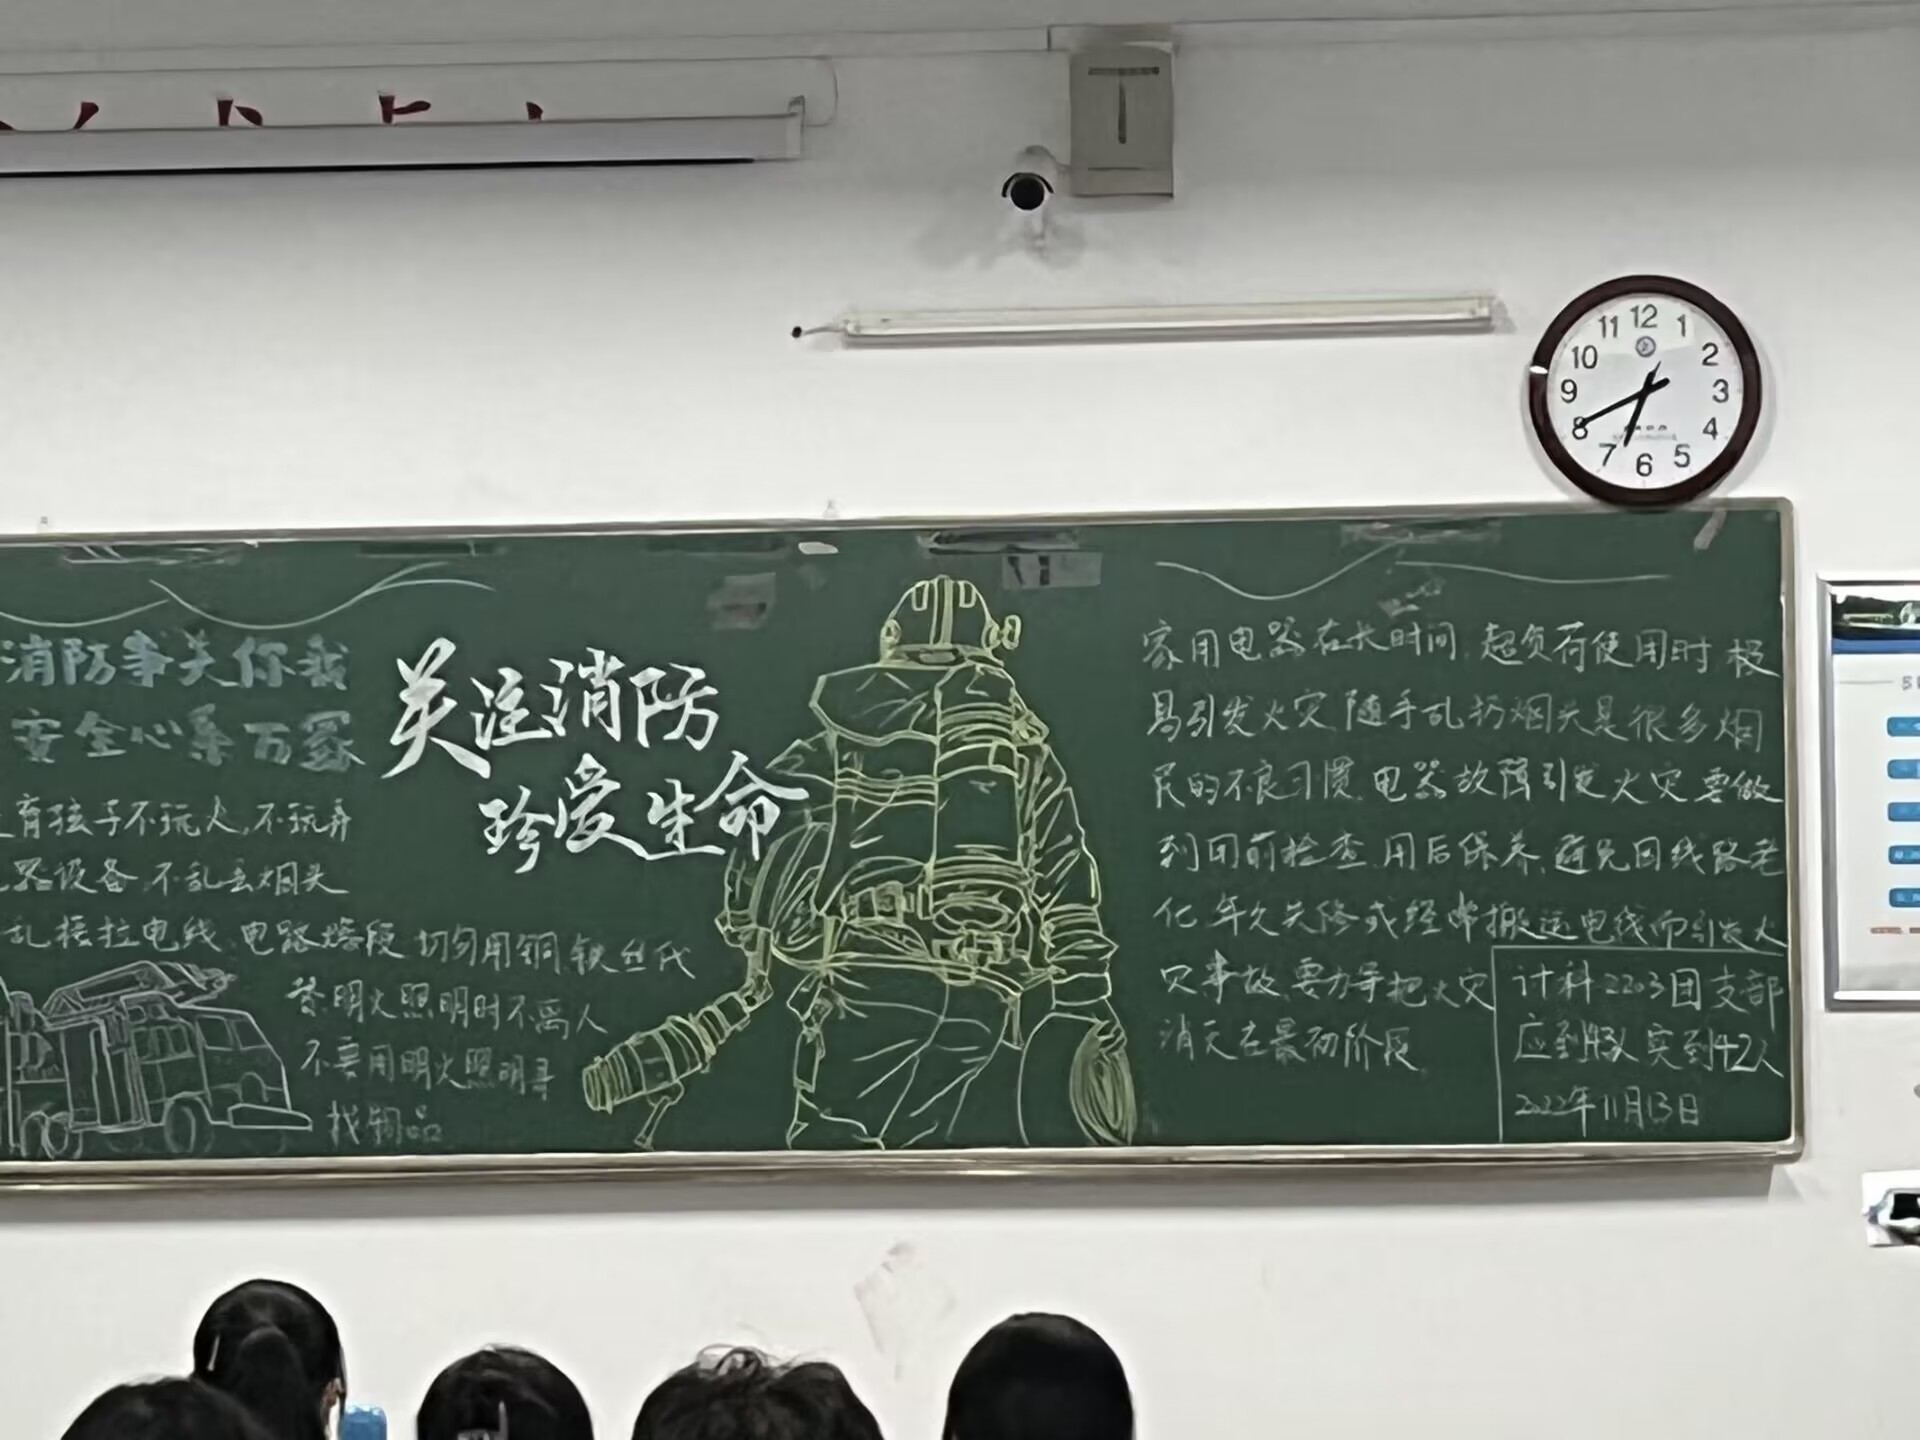 消防事关你我
安全心系万家
育孩子不玩火,不玩弄
器设备 不乱丢烟头
乱接拉电线 电路熔段 切勿用铜 铁丝代
禁明火照明时不离人
不要用明火照明寻
找物品
关注消防
珍爱生命
家用电器在长时间 超负荷使用时 极
易引发火灾 随手乱扔烟头是很多烟
民的不良习惯 电器故障引发火灾 要做
到用前检查 用后保养 避免因线路老
化 年久失修或经常搬运电线而引发火
灾事故 要力争把火灾
消灭在最初阶段
计科2203团支部
应到43人 实到42人
2022年11月13日
12
1
2
3
4
5
6
7
8
9
10
11